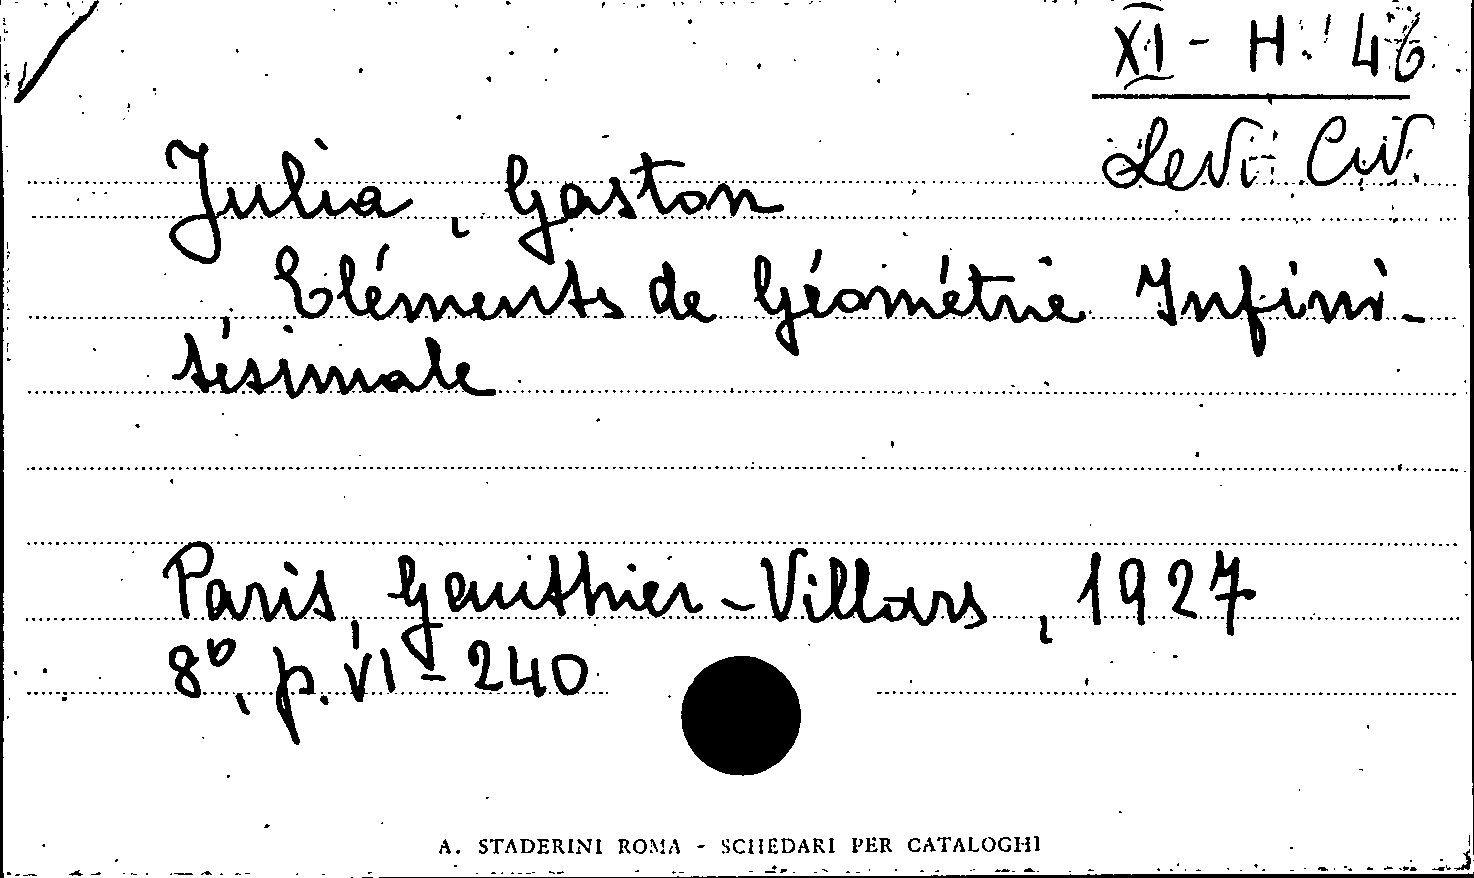 XI - H. 46
Levi Civ.
Julia, Gaston
Eléments de Géométrie Infini-
tésimale
Paris, Gauthier-Villars, 1927
8º, p. VI-240
A. STADERINI ROMA - SCHEDARI PER CATALOGHI